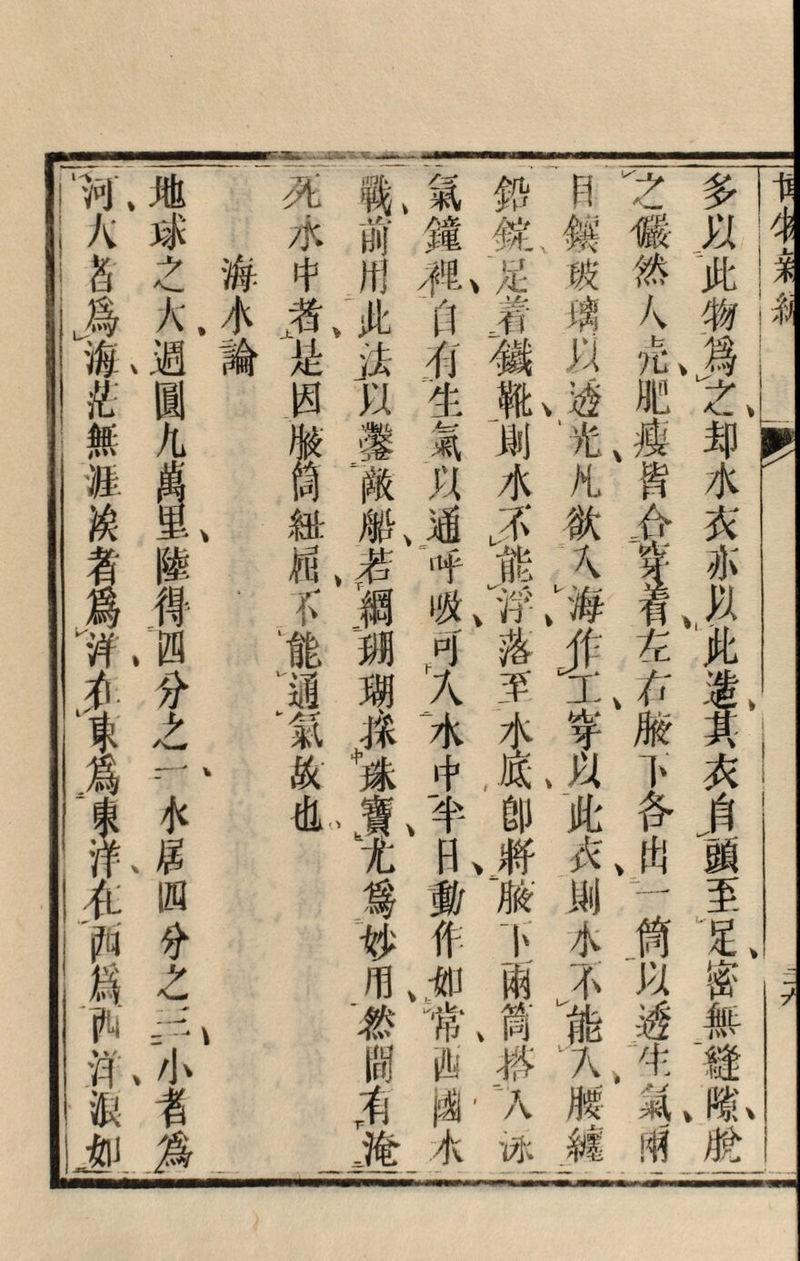 博物新編
多以此物爲之、却水衣亦以此造、其衣自頭至足、密無縫隙、脫
之儼然人壳、肥瘦皆合穿着、左右腋下各出一筒以透生氣、兩
目鑲玻璃以透光、凡欲入海作工、穿以此衣、則水不能入、腰纏
鉛錠、足着鐵靴、則水不能浮、落至水底、卽將腋下兩筒搭入泳
氣鐘裡、自有生氣以通呼吸、可入水中半日、動作如常、西國水
戰、前用此法以鑿敵船、若網珊瑚採珠寶、尤爲妙用、然間有淹
死水中者、是因腋筒紐屈、不能通氣故也、
海水論
地球之大、週圓九萬里、陸得四分之一、水居四分之三、小者爲
河、大者爲海、茫無涯涘者爲洋、在東爲東洋、在西爲西洋、浪如